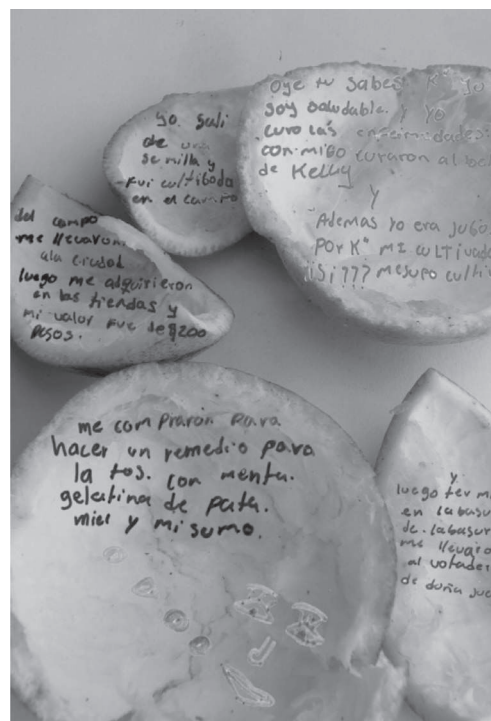 Yo Sali
de una
semilla y
fui cultibada
en el camino
Oye tu sabes K" Yo
soy saludable. y Yo
curo las enfermedades
con migo curaron al be
de Kelly
y
"Ademas Yo era jugo
POR K" MI CULTIVado
¡¡Si??? mesupo culti
del campo
me llevaron
ala ciudad
luego me adquirieron
en las tiendas y
Mi valor fue de $200
pesos.
me compraron para
hacer un remedio para
la tos. con menta.
gelatina de pata.
miel y mi sumo.
y
luego ter mi
en labasu
de. labasur
me llevaro
al votader
de doña jua